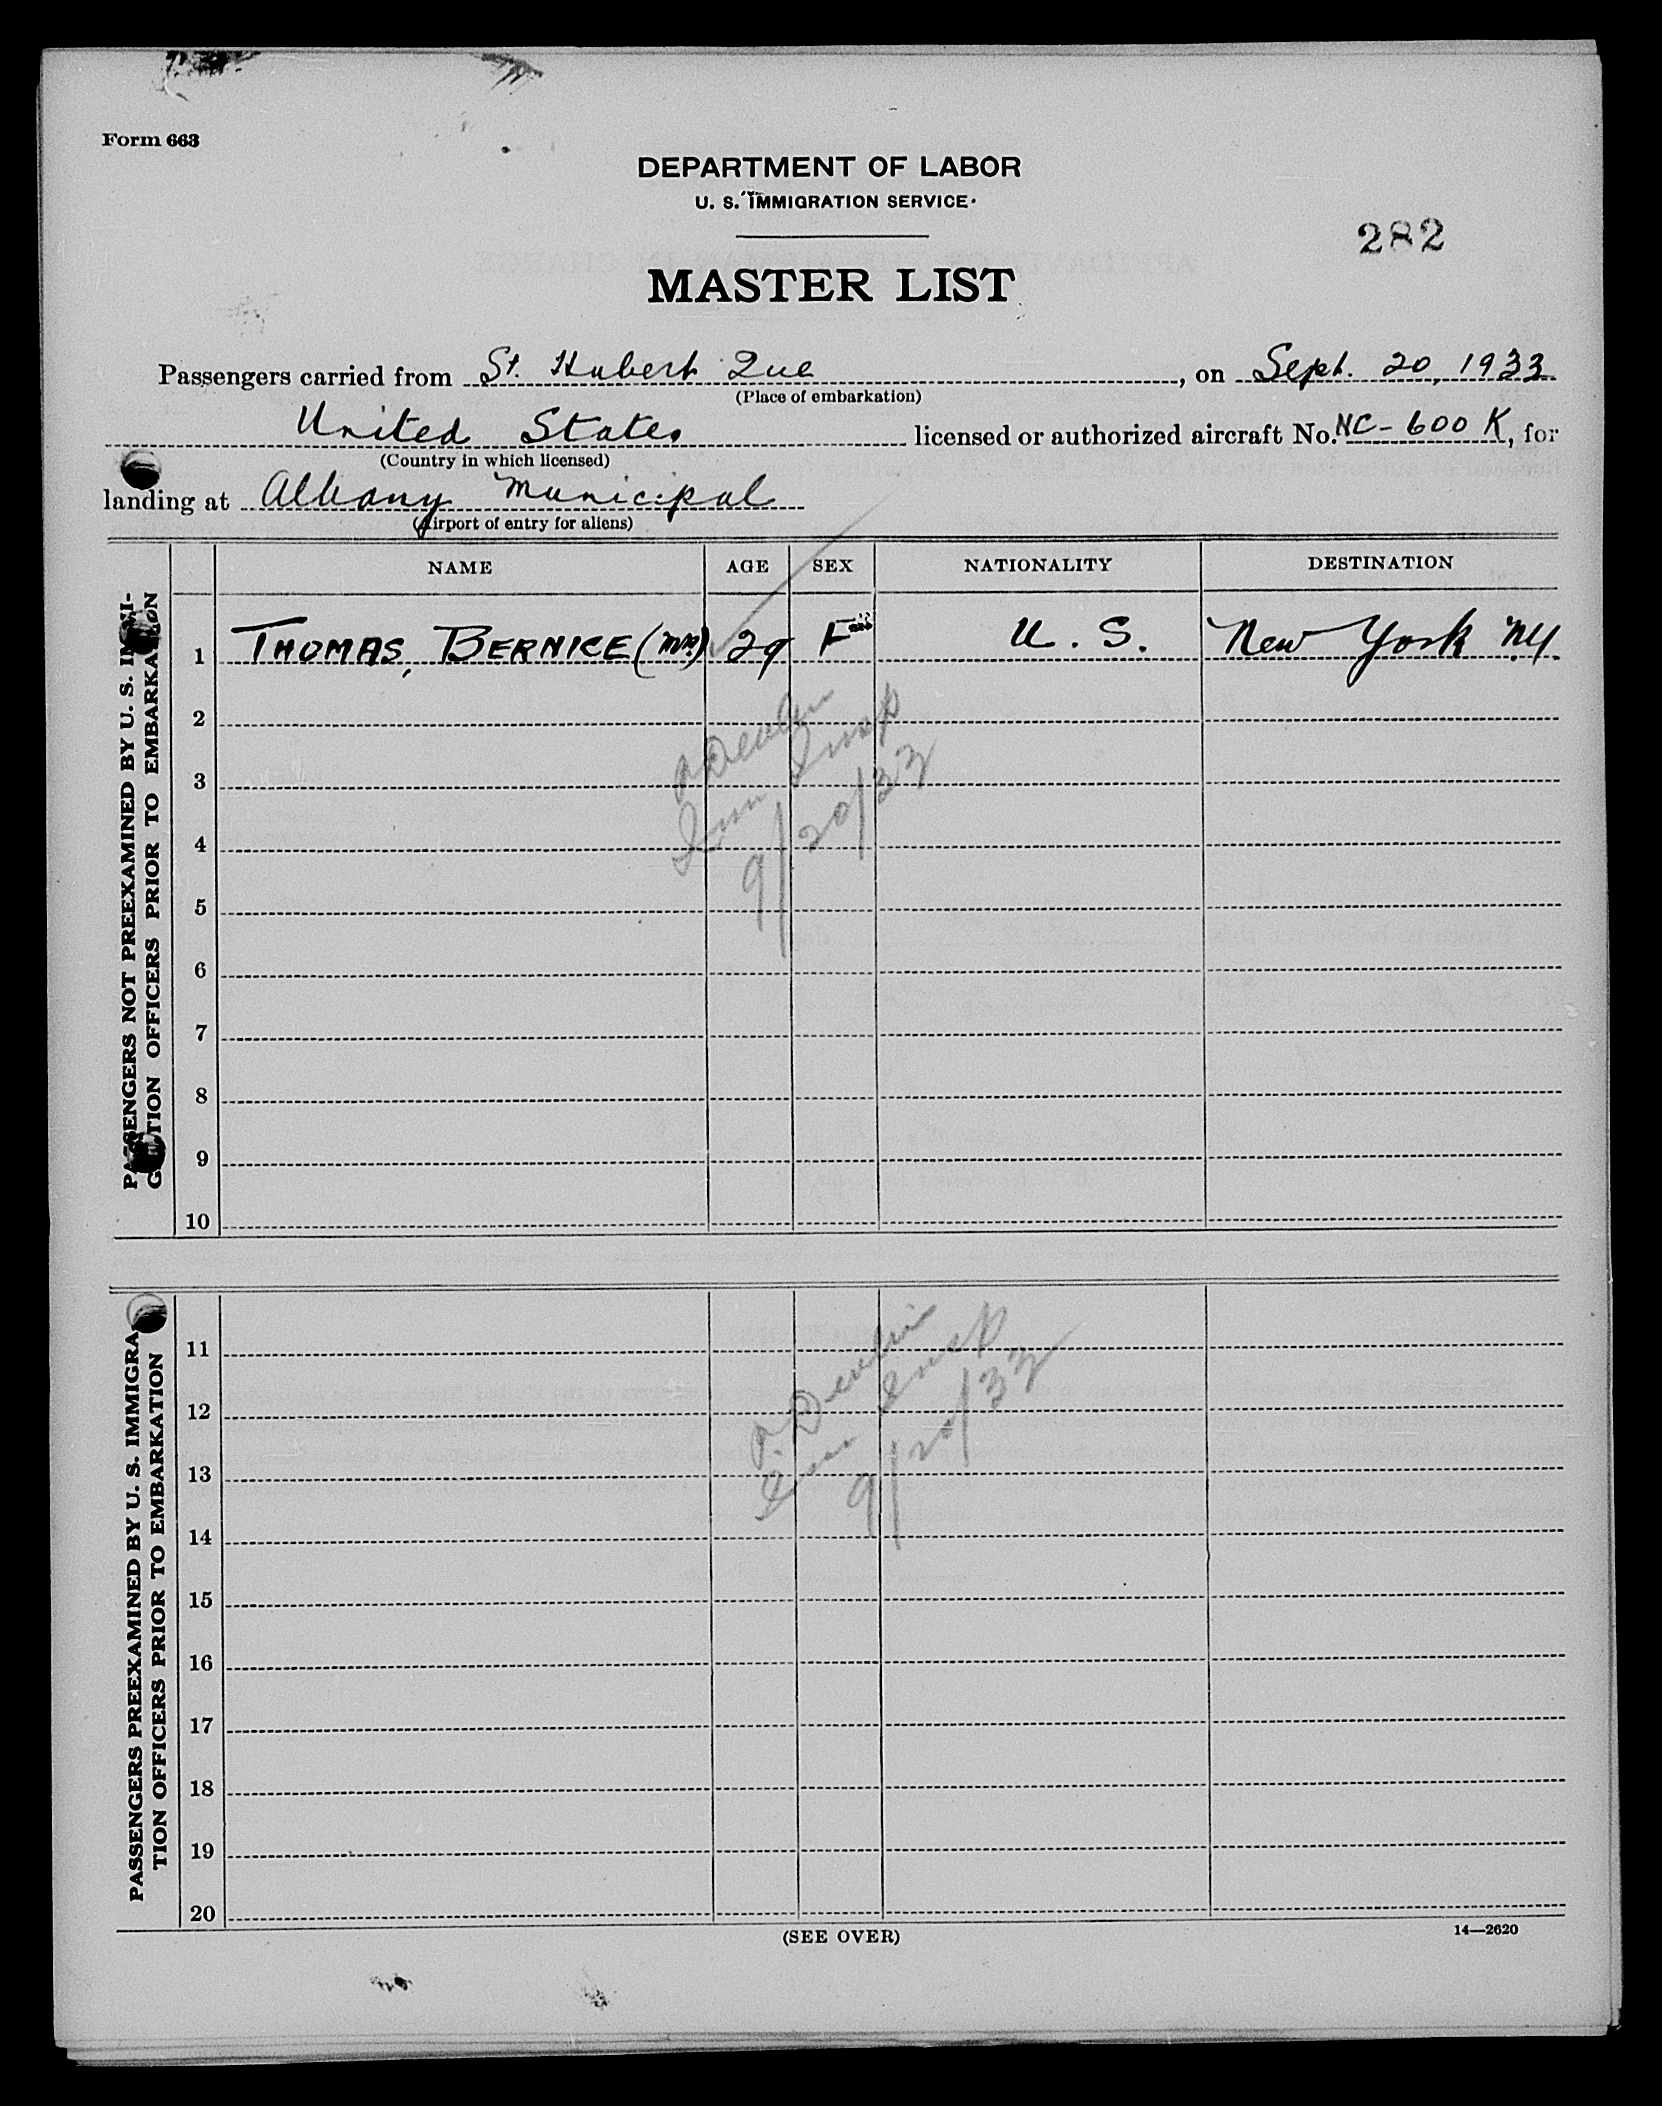 Form 663
DEPARTMENT OF LABOR
U. S. IMMIGRATION SERVICE
282
MASTER LIST
Passengers carried from St. Hubert Que, on Sept. 20, 1933
(Place of embarkation)
United States licensed or authorized aircraft No. NC-600 K, for
(Country in which licensed)
landing at Albany Municipal
(Airport of entry for aliens)
NAME AGE SEX NATIONALITY DESTINATION
PASSENGERS NOT PREEXAMINED BY U. S. IMMI-
GRATION OFFICERS PRIOR TO EMBARKATION
1 THOMAS, BERNICE 29 F U. S. New York NY.
2
Devlin
3
Imm Insp
4
9/20/33
5
6
7
8
9
10
PASSENGERS PREEXAMINED BY U. S. IMMIGRA
TION OFFICERS PRIOR TO EMBARKATION
11
12
Devlin
13
Imm Insp
9/20/33
14
15
16
17
18
19
20
(SEE OVER)
14—2620